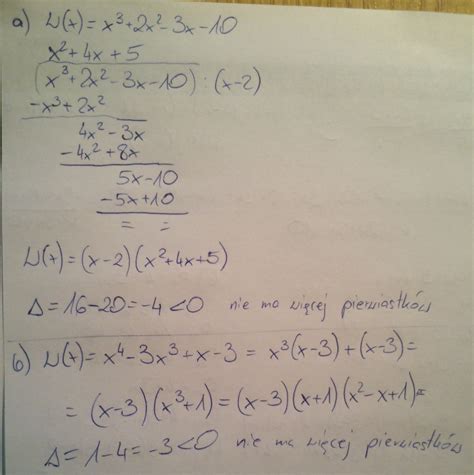 a) W(x)=x³+2x²-3x-10
x²+4x+5
(x³+2x²-3x-10):(x-2)
-x³+2x²
4x²-3x
-4x²+8x
5x-10
-5x+10
= =
W(x)=(x-2)(x²+4x+5)
Δ=16-20=-4<0 nie ma więcej pierwiastków
b) W(x)=x⁴-3x³+x-3=x³(x-3)+(x-3)=
=(x-3)(x³+1)=(x-3)(x+1)(x²-x+1)=
Δ=1-4=-3<0 nie ma więcej pierwiastków